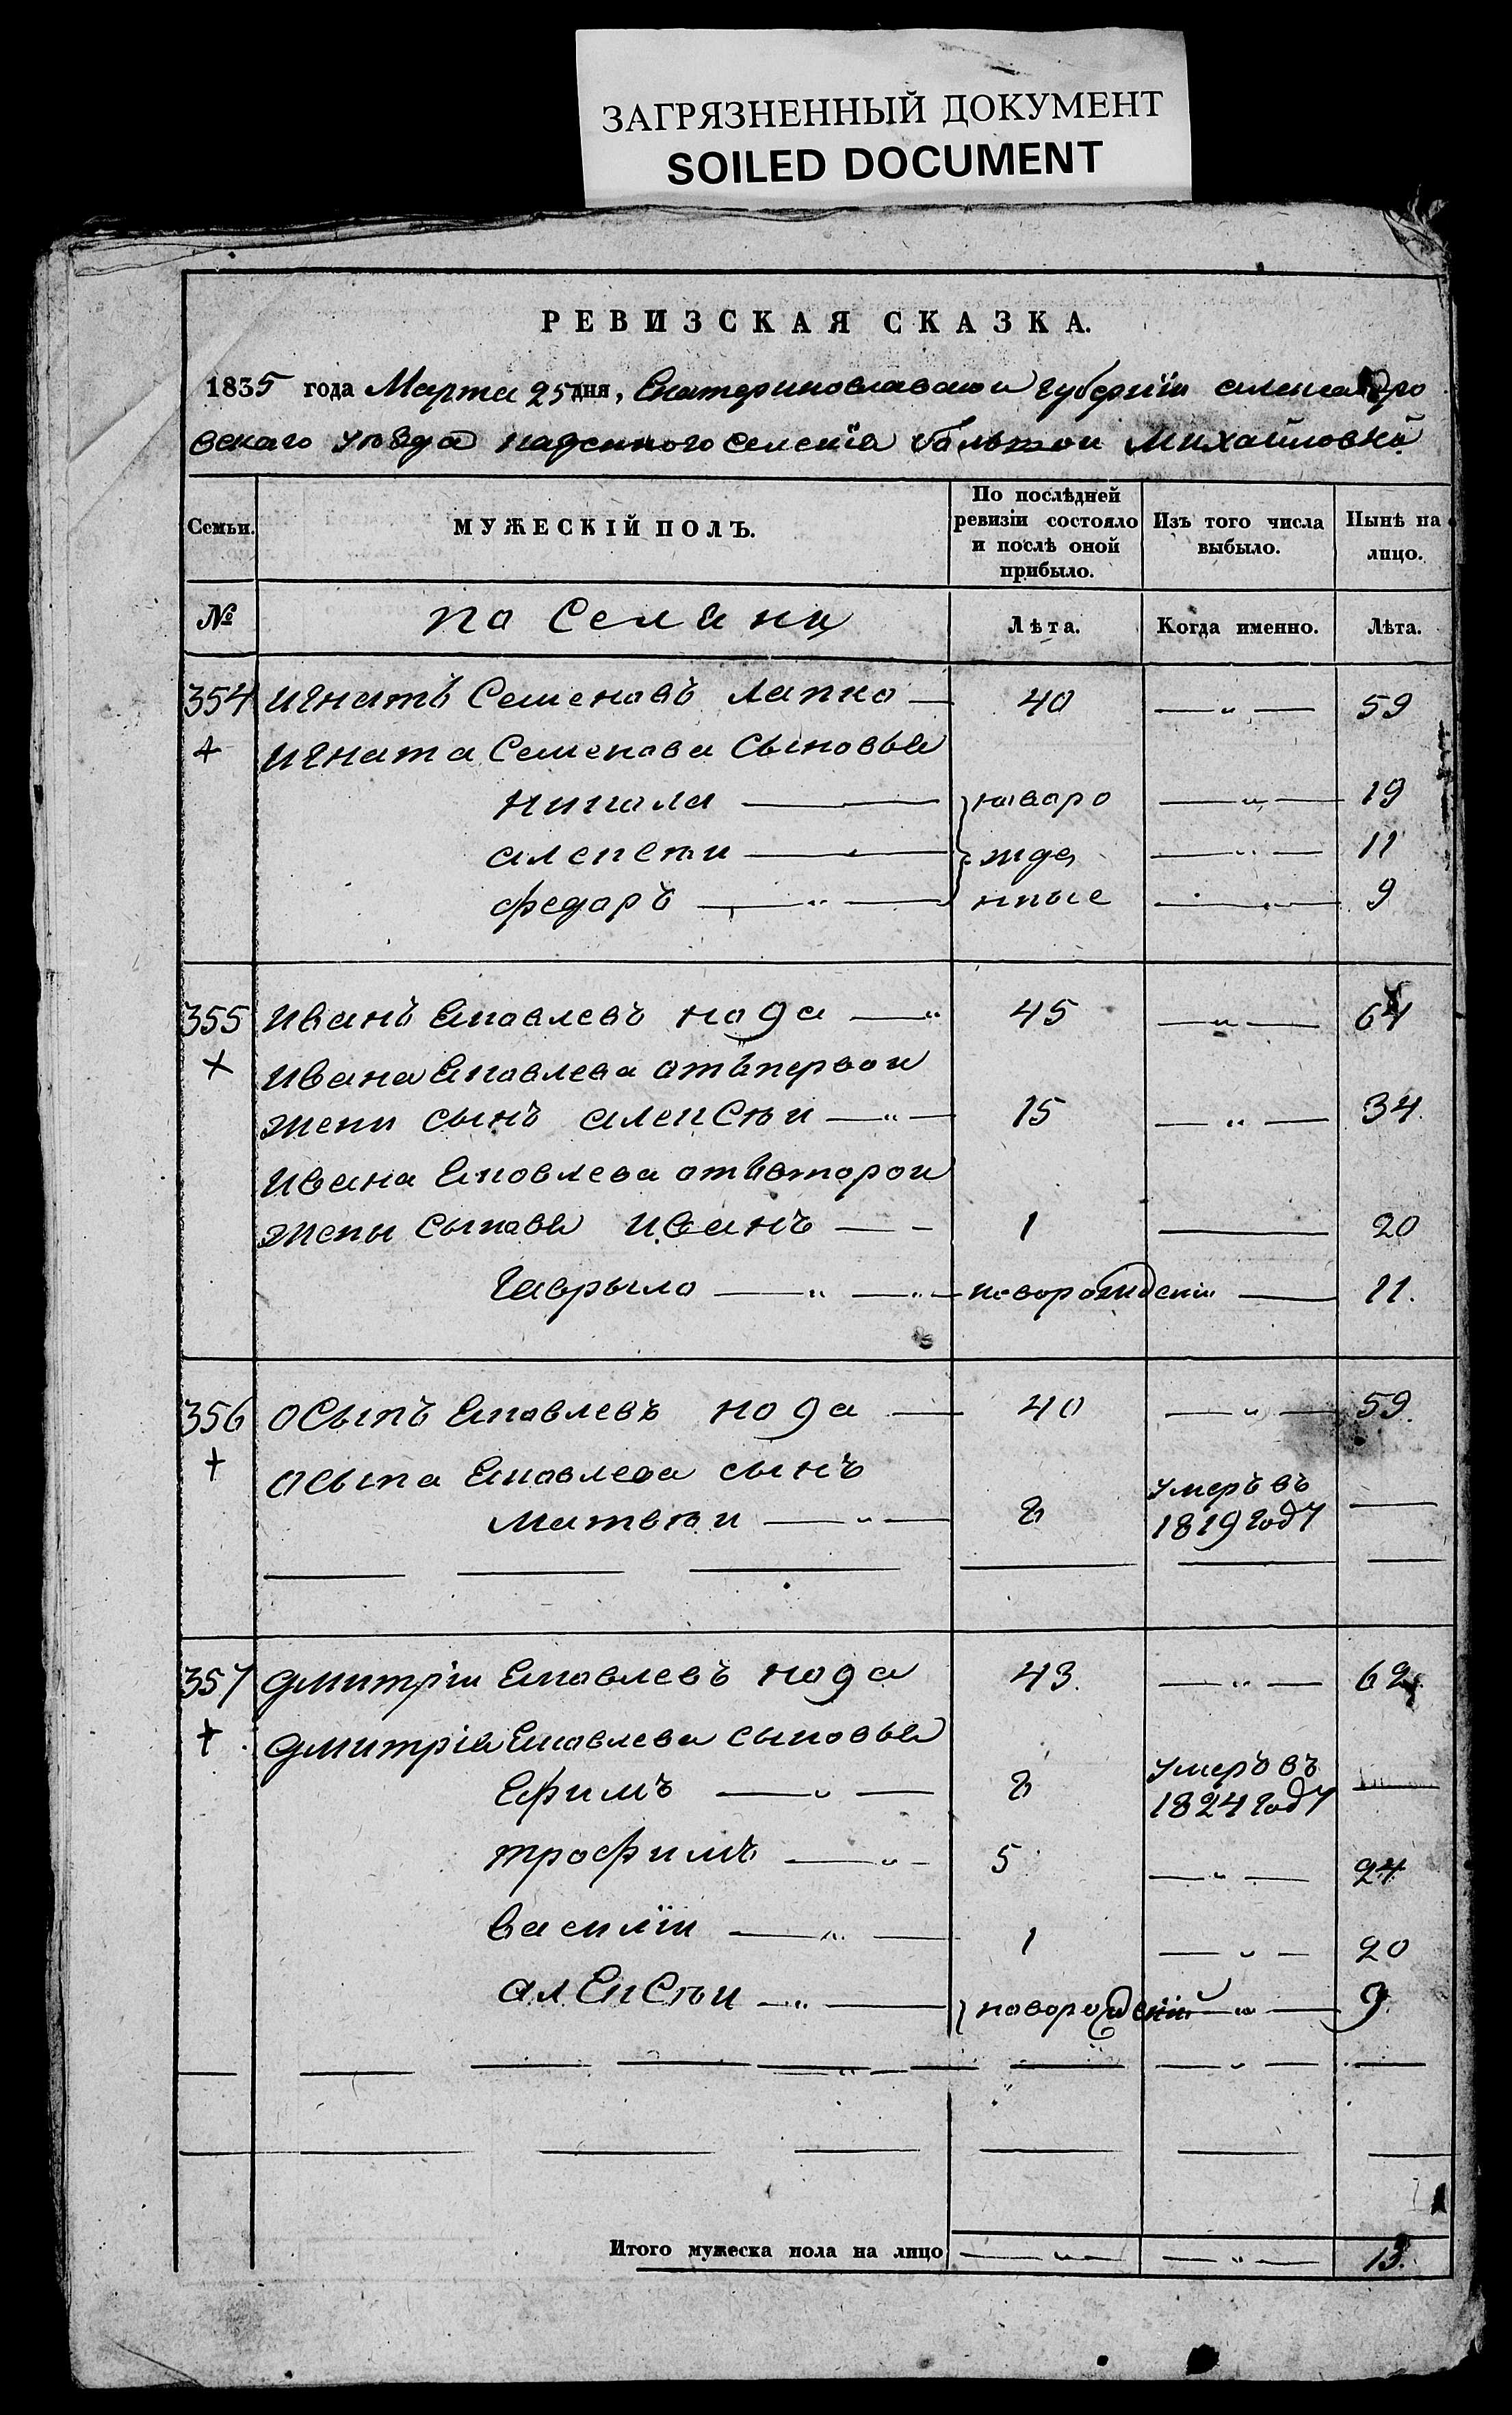 ЗАГРЯЗНЕННЫЙ ДОКУМЕНТ
SOILED DOCUMENT
РЕВИЗСКАЯ СКАЗКА.
1835 года Марта 25 дня, Екатеринославской Губернiи александро
вскаго уѣзда казенного селенiя болшои Михайловки
Семьи.
МУЖЕСКІЙ ПОЛЪ.
По послѣдней ревизіи состояло и послѣ оной прибыло.
Изъ того числа выбыло.
Нынѣ на лицо.
№
Поселяни
Лѣта.
Когда именно.
Лѣта.
354 игнатъ Семеновъ лапко 40 — „ — 59
+ игната Семенова Сыновья
никола новоро — „ — 19
алексѣи жде — „ — 11
федоръ — „ — нные — „ — 9
355 иванъ Яковлевъ кода — „ 45 — „ — 64
+ ивана Яковлева отъ первои
жени сынъ алексѣи — „ — 15 — „ — 34.
ивана Яковлева отъ второи
жены сыновя иванъ — 1 — 20
гаврыло — „ — „ — новорожденіи — 11.
356 осыпъ Яковлевъ кода — 40 — „ — 59.
+ осыпа Яковлева сынъ
матвѣи — „ — 8 умеръ въ 1819 году —
357 дмитріи Яковлевъ кода 43. — „ — 62
+ дмитрія Яковлева сыновья
Ефимъ — „ — 8 умеръ въ 1824 году —
трофимъ — „ — 5 — „ — 24
василіи — „ — 1 — „ — 20
алексѣи — „ — новорожденій — „ — 9.
Итого мужеска пола на лицо — „ — — „ — 13.